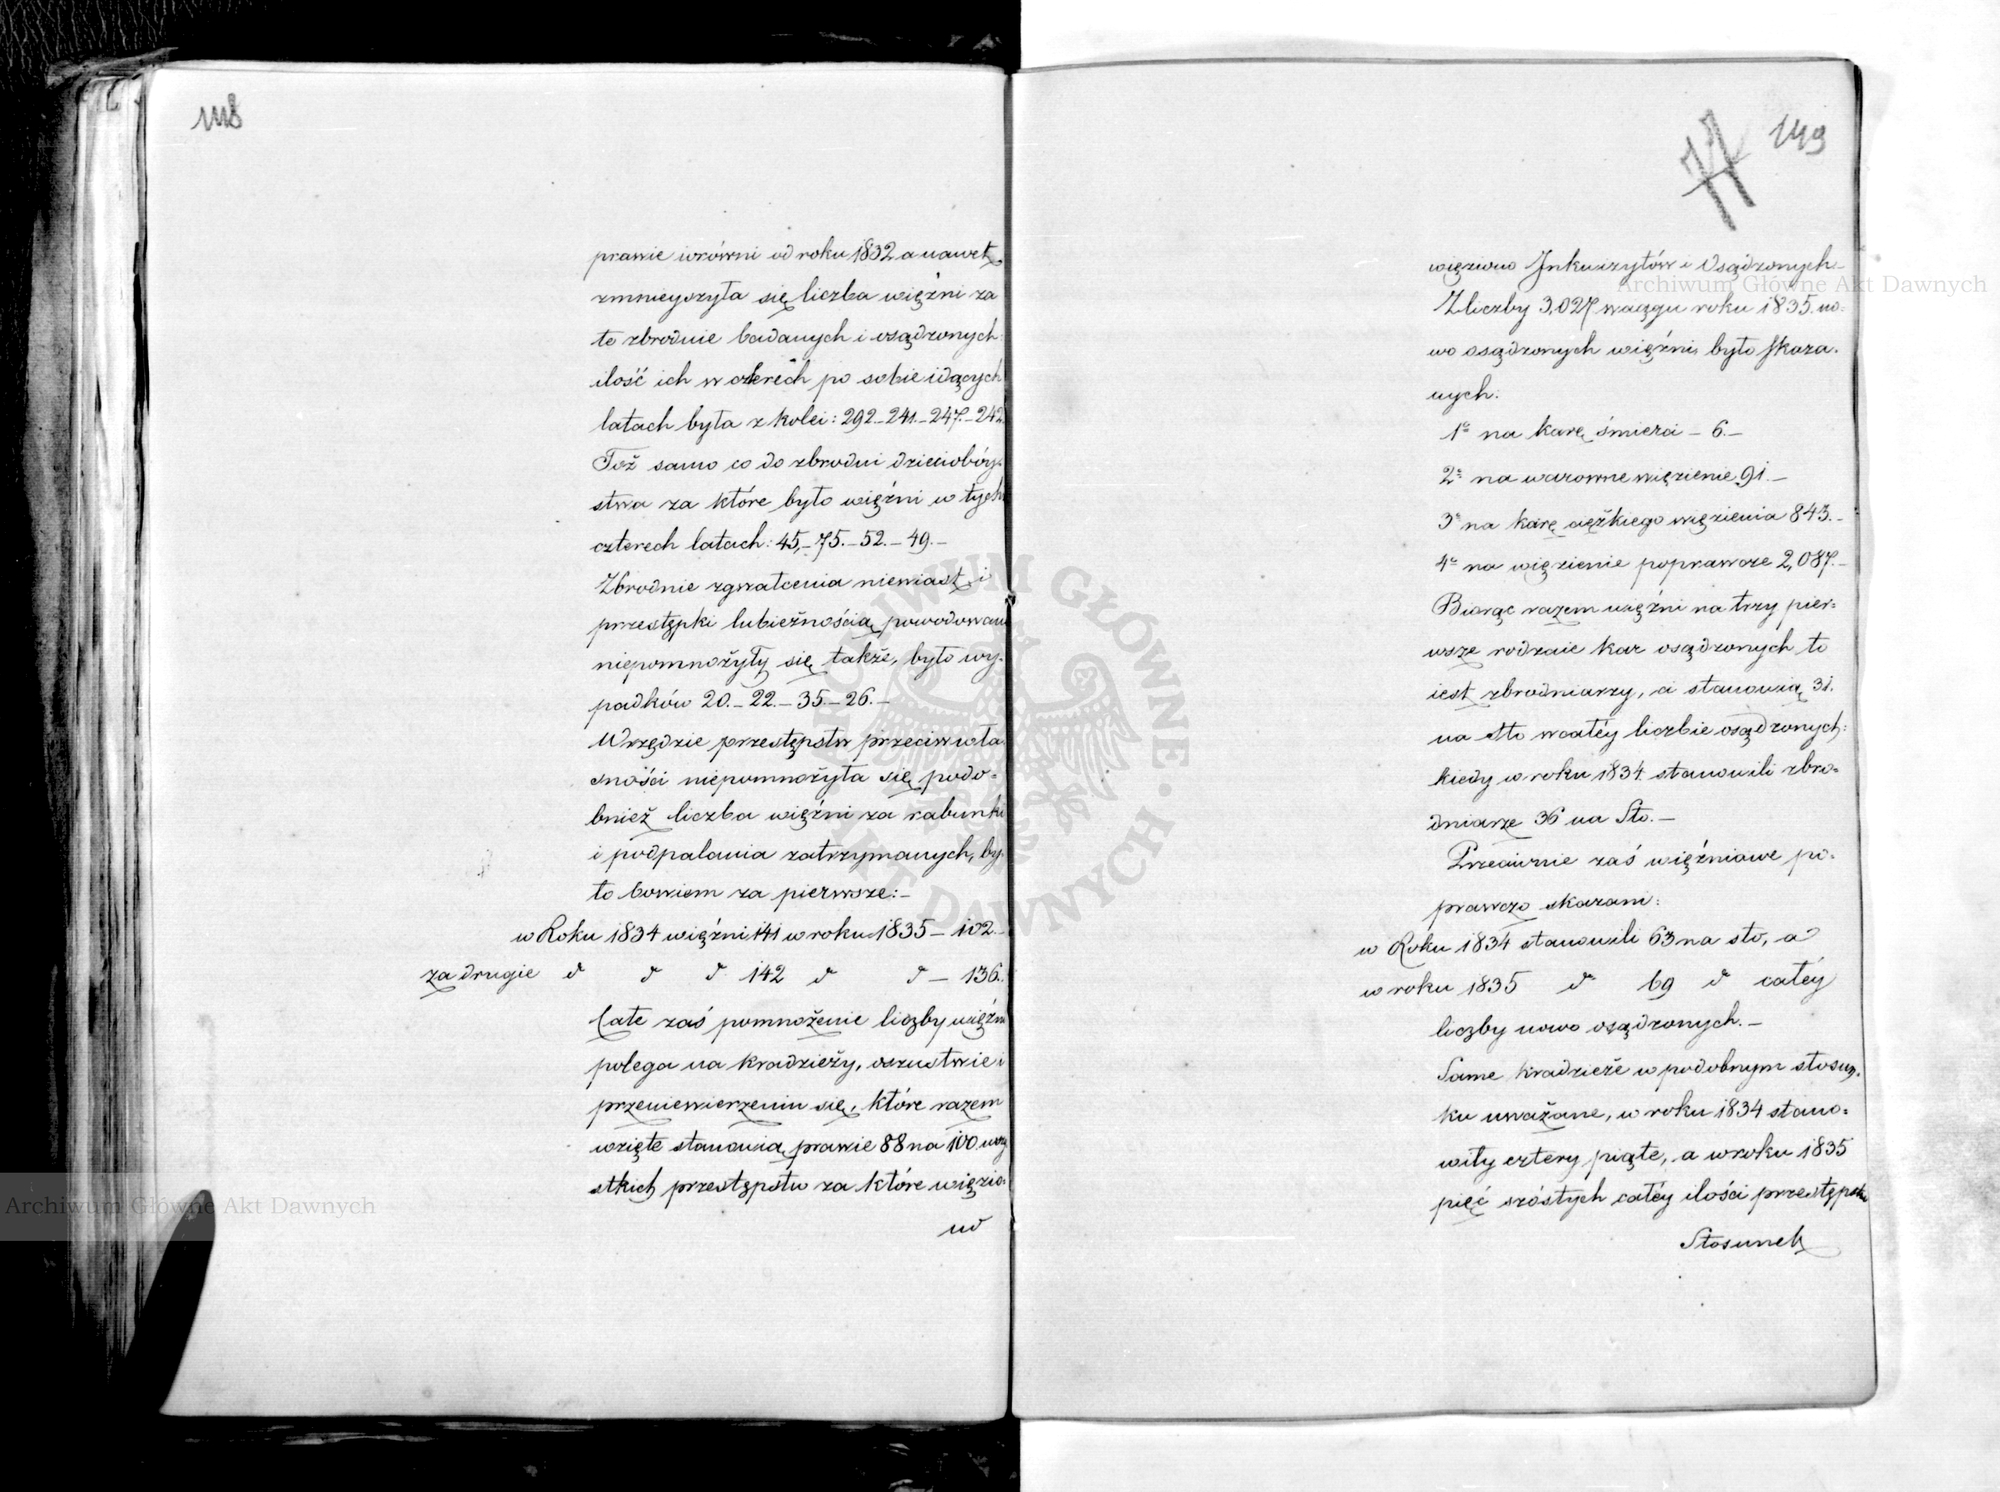 148
prawie wrówni od roku 1832 a nawet
zmnieyszyła się liczba więźni za
te zbrodnie badanych i osądzonych
ilość ich w czterech po sobie idących
latach była z kolei: 292.–241.–247.–242.
Toż samo co do zbrodni dzieciobóy-
stwa za które było więźni w tych
czterech latach: 45,–75.–52.–49.–
Zbrodnie zgwałcenia niewiast i
przestępki lubieżnością powodowane
niepomnożyły się także, było wy-
padków 20.–22.–35.–26.–
Wrzędzie przestępstw przeciw wła
sności niepomnożyła się podo-
bnież liczba więźni za rabunki
i podpalania zatrzymanych, by-
ło bowiem za pierwsze:–
w Roku 1834 więźni 141 w roku 1835 – 102.–
za drugie d d d 142 d d – 136.
Całe zaś pomnożenie liczby więźni
polega na kradzieży, oszustwie i
przeniewierzeniu się, które razem
wzięte stanowią prawie 88 na 100 wszy
stkich przestępstw za które więzio-
no
77
149
więziono Inkwizytów i Osądzonych
Zliczby 3,027 wciągu roku 1835. no-
wo osądzonych więźni było skaza-
nych:
1e na karę śmierci – 6.–
2e na warowne więzienie 91.–
3e na karę ciężkiego więzienia 843.–
4e na więzienie poprawcze 2,087.–
Biorąc razem więźni na trzy pier-
wsze rodzaie kar osądzonych to
iest zbrodniarzy, ci stanowią 31.
na sto wcałéy liczbie osądzonych:
kiedy w roku 1834 stanowili zbro-
dniarze 36 na Sto.–
Przeciwnie zaś więźniowe po-
prawczo skazani:
w Roku 1834 stanowili 63 na sto, a
w roku 1835 d 69 d całéy
liczby nowo osądzonych.–
Same kradzieże w podobnym stosun-
ku uważane, w roku 1834 stano-
wiły cztery piąte, a w roku 1835
pięć szóstych całéy ilości przestępstw
Stosunek
Archiwum Główne Akt Dawnych
Archiwum Główne Akt Dawnych
ARCHIWUM GŁÓWNE AKT DAWNYCH